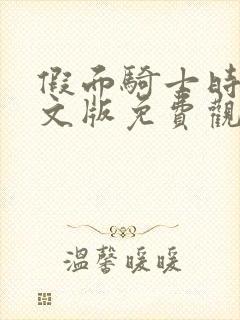 假面騎士時
文版免費觀
溫馨暖暖